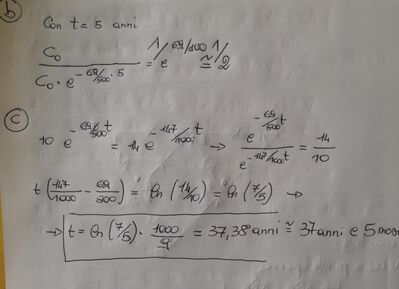 b Con t = 5 anni
C₀ / C₀ · e^(-69/500 · 5) = 1/e^(69/100) ≅ 1/2
c 10 e^(-69/500 t) = 14 e^(-147/1000 t) → e^(-69/500 t) / e^(-147/1000 t) = 14/10
t (147/1000 - 69/500) = ln (14/10) = ln (7/5) →
→ t = ln (7/5) · 1000/9 = 37,38 anni ≅ 37 anni e 5 mesi